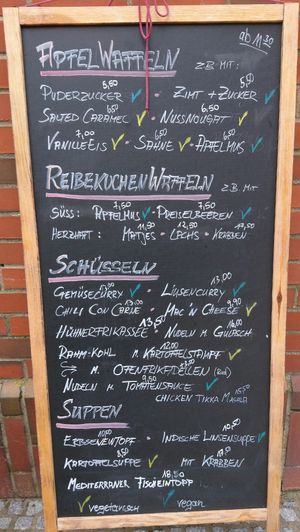 ab 11:30
APFELWAFFELN z.B. MIT:
5,50 5,50
PUDERZUCKER ✓ • ZIMT + ZUCKER ✓
6,50 6,50
SALTED CARAMEL ✓ • NUSSNOUGAT ✓
7,00 6,50 7,50
VANILLEEIS ✓ • SAHNE ✓ • APFELMUS ✓
REIBEKUCHENWAFFELN z.B. MIT
7,50 7,50
SÜSS: APFELMUS ✓ • PREISELBEEREN ✓
11,50 12,50
HERZHAFT: MATJES • LACHS • KRABBEN
SCHÜSSELN
13,00
GEMÜSECURRY ✓ • LINSENCURRY ✓
9,90
CHILI CON CARNE • MAC'N CHEESE ✓
13,50
HÜHNERFRIKASSEE • NUDELN M. GULASCH
12,00
RAHM-KOHL M. KARTOFFELSTAMPF ✓
↳ M. OFENFRIKADELLEN (Rind)
9,50
NUDELN M. TOMATENSAUCE ✓
15,50
CHICKEN TIKKA MASALA
SUPPEN
ERBSENEINTOPF • INDISCHE LINSENSUPPE ✓
KARTOFFELSUPPE ✓ MIT KRABBEN
18,50
MEDITERRANER FISCHEINTOPF
✓ vegetarisch ✓ vegan